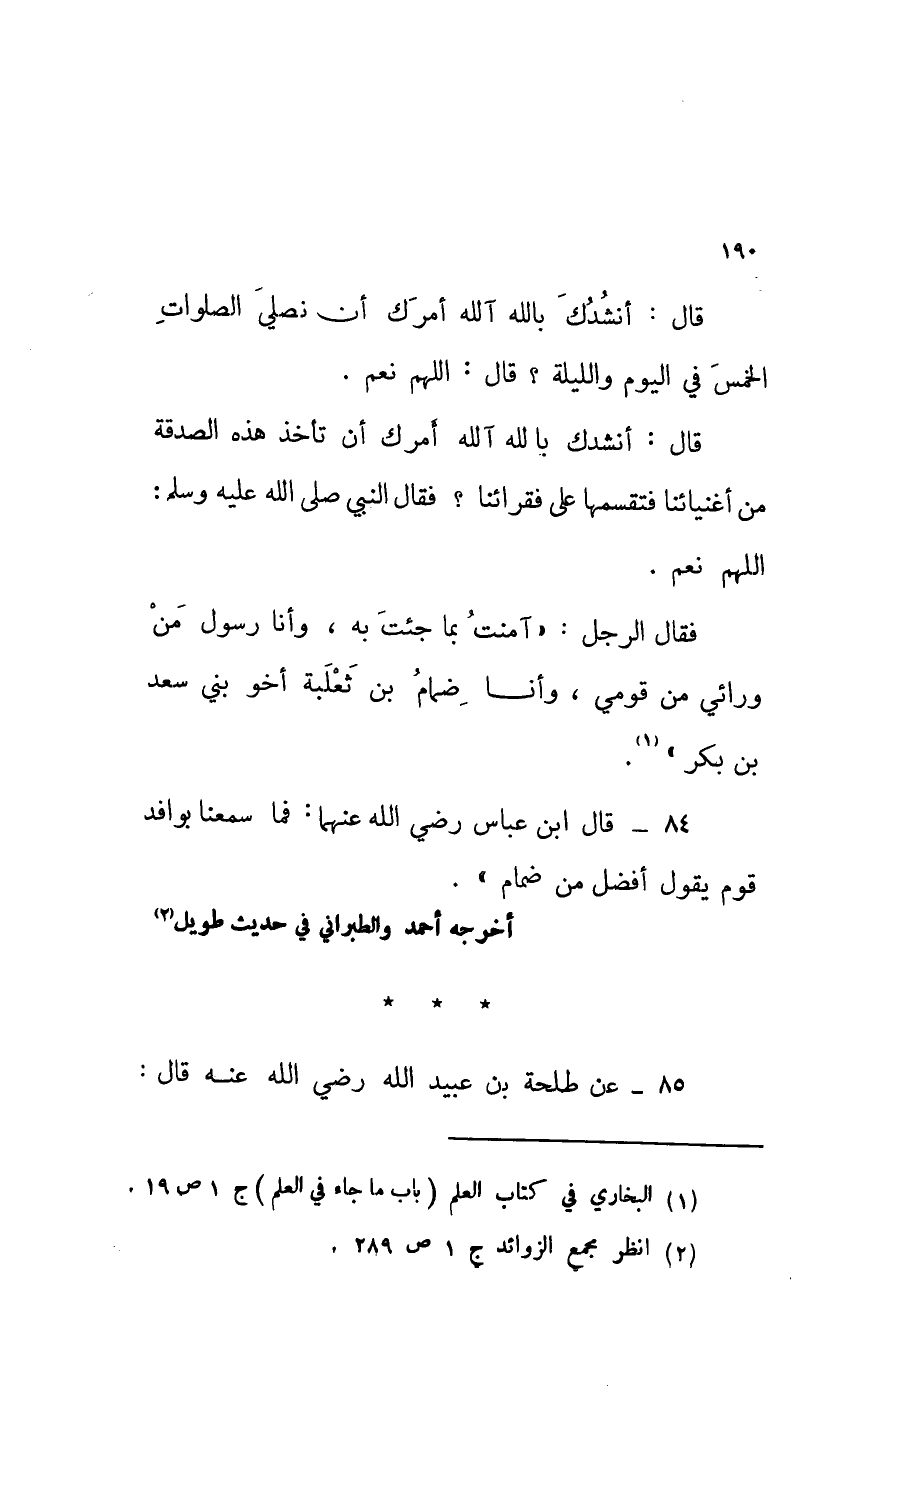 ١٩٠
قال : أنشُدُكَ بالله آلله أمرَك أن نصليَ الصلواتِ
الخمسَ في اليوم والليلة ؟ قال : اللهم نعم .
قال : أنشدك بالله آلله أَمرك أن تأخذ هذه الصدقة
من أغنيائنا فتقسمها على فقرائنا ؟ فقال النبي صلى الله عليه وسلم :
اللهم نعم .
فقال الرجل : « آمنتُ بما جئتَ به ، وأنا رسول مَنْ
ورائي من قومي ، وأنـــا ضِمامُ بن ثَعْلَبة أخو بني سعد
بن بكر » (١).
٨٤ ــ قال ابن عباس رضي الله عنهما : فما سمعنا بوافد
قوم يقول أفضل من ضمام » .
أخرجه أحمد والطبراني في حديث طويل(٢)
* * *
٨٥ ــ عن طلحة بن عبيد الله رضي الله عنـه قال :
(١) البخاري في كتاب العلم ( باب ما جاء في العلم ) ج ١ ص ١٩ .
(٢) انظر مجمع الزوائد ج ١ ص ٢٨٩ .